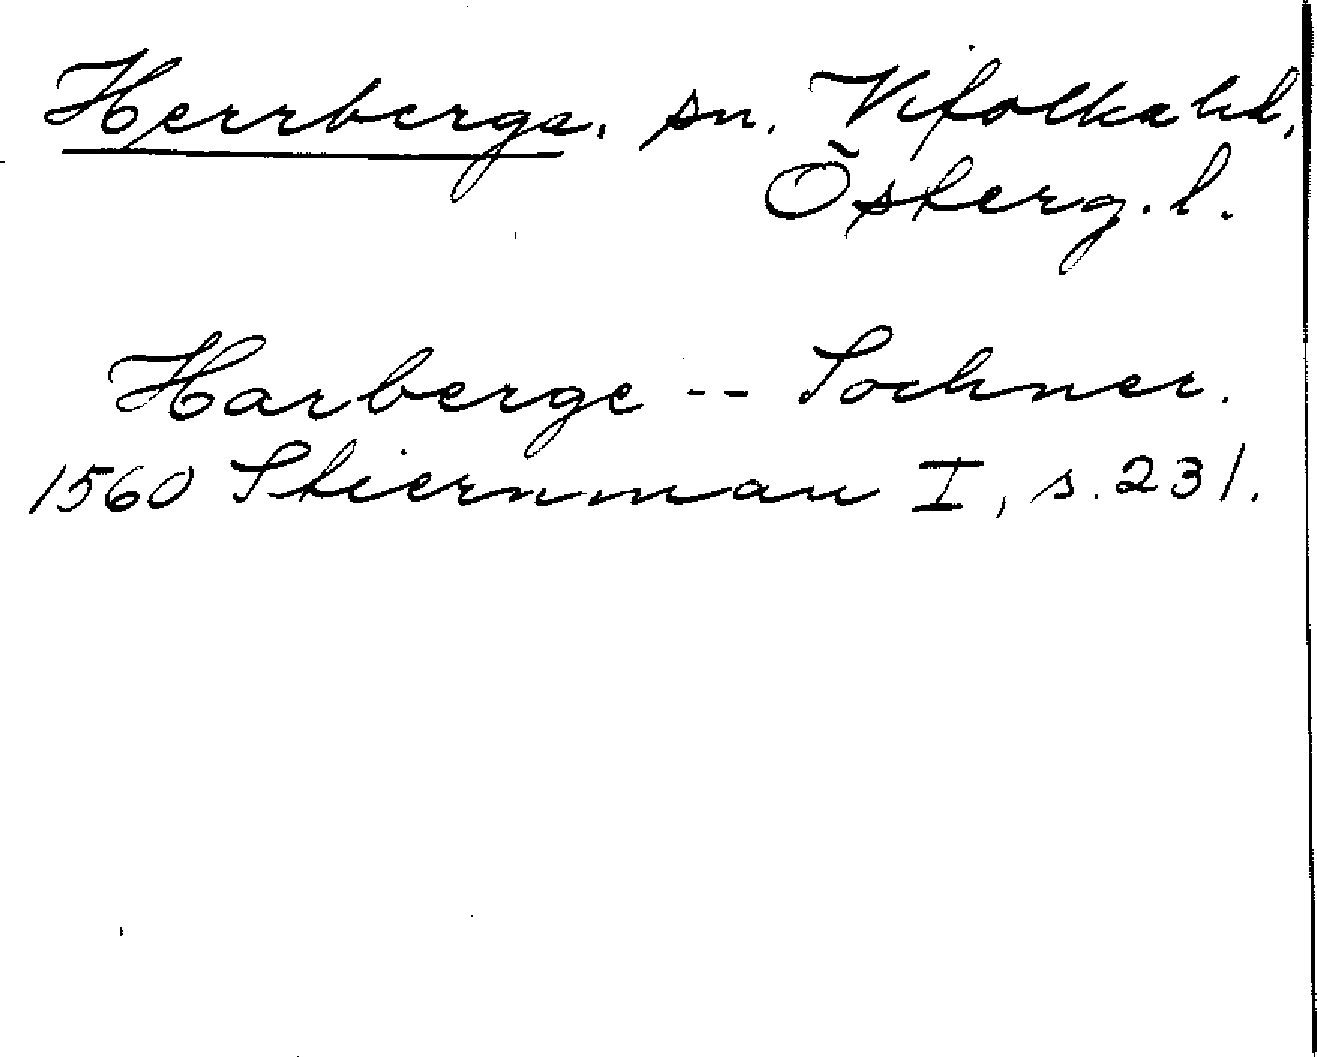 Herrberga, sn. Vifolka hd,
Österg. l.
Harberge -- Sochner.
1560 Stiernman I, s. 231.